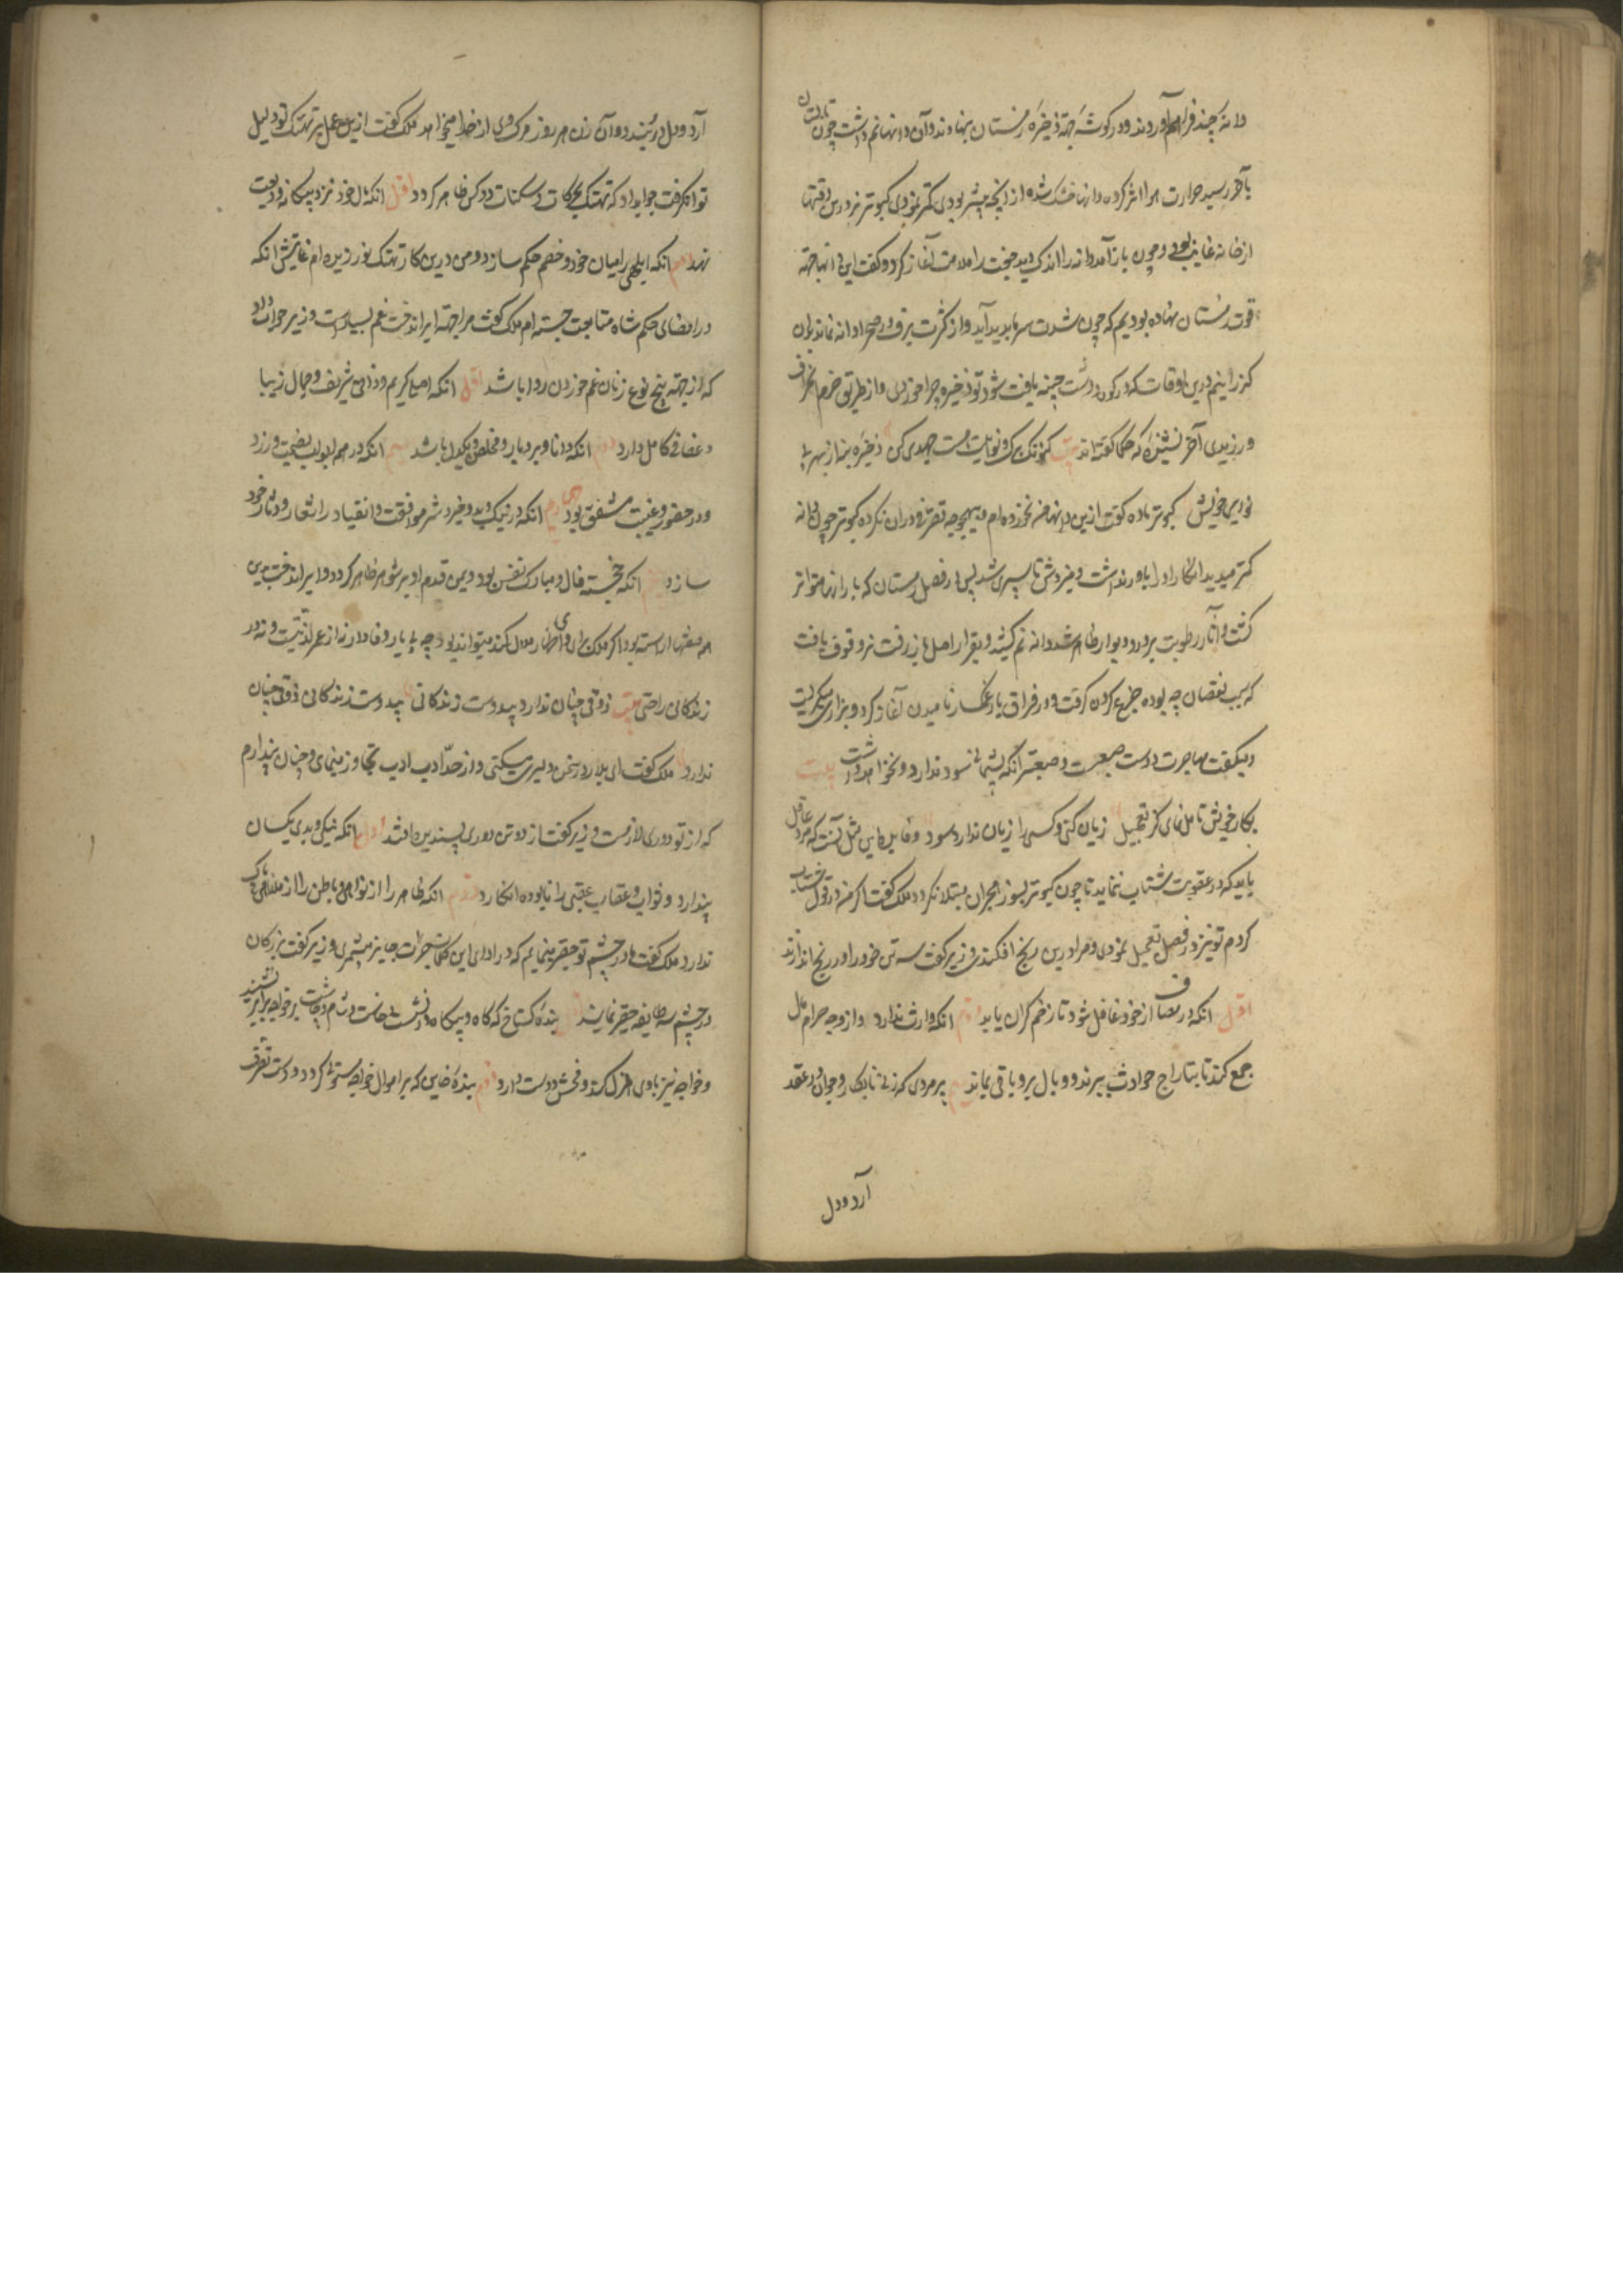 دانهٔ چند فراهم آوردند و در گوشهٔ جهة ذخیرهٔ زمستان بنهادند و آن دانها نم داشت چون تابستان
بآخر رسید حرارت هوا اثر کرده دانها خشک شده از آنچه پیشتر بودی کمتر نمودی کبوتر نر درین وقتها
از خانه غایب بود و چون باز آمد دانه را اندک دید جفت را ملامت آغاز کرد و گفت این دانها جهة
قوت زمستان نهاده بودیم که چون شدت سرما پدید آید و از کثرت برف در صحرا دانه نماند بدان
گذرانیم درین اوقات که در کوه و دشت چینه یافت شود تو ذخیره چرا خوردی و از طریق حزم انحراف
ورزیدی آخر نشنیدهٔ که حکما گفته‌اند بیت کنونک برک و نوایت هست جهدی کن ذخیرهٔ بنه از بهر
خویش کبوتر ماده گفت ازین دانها من نخورده‌ام و بهیچوجه تصرف در آن نکرده کبوتر چون دانه
کمتر میدید انکار او را باور نداشت و میزدش تا سپری شد پس در فصل زمستان که بارانها متواتر
گشت و آثار رطوبت بر در و دیوار ظاهر شد دانه نم کشید و بقرار اصل باز رفت نر وقوف یافت
که سبب نقصان چه بوده جزع کردن گرفت و در فراق یار غمگسار نالیدن آغاز کرد و بزاری میگریست
و میگفت مهاجرت دوست صعبست و صعبتر آنکه پشیمانی سود ندارد و نخواهد داشت بیت
بکار خویش تامل نمای کز تعجیل زیان کنی و کسی را زیان ندارد سود و فایدهٔ این مثل آنست که مرد عاقل
باید که در عقوبت شتاب ننماید تا چون کبوتر بسوز هجران مبتلا نگردد ملک گفت اگر من در قول شتاب
کردم تو نیز در فعل تعجیل نمودی و مرا درین رنج افکندی وزیر گفت سه تن خود را در رنج اندازند
اول آنکه در مصاف از خود غافل شود تا زخم گران یابد دوم آنکه وارث ندارد و از وجه حرام مال
جمع کند تا بتاراج حوادث ببرند و وبال برو باقی ماند سیم پیر مردی که زنی نابکار و جوان در عقد
آرد و دل
آرد و دل در بندد و آن زن هر روز مرک وی از خدا میخواهد ملک گفت ازین عمل بر تهتک تو دلیل
توان گرفت جواب داد که تهتک بحرکات و سکنات دو کس ظاهر گردد اول آنکه مال خود نزد بیگانه ودیعت
نهد دوم آنکه ابلهی را میان خود و خصم حکم سازد و من درین کار تهتک نورزیده‌ام غایتش آنکه
در امضای حکم شاه متابعت جسته‌ام ملک گفت مرا جهة ایراندخت غم بسیارست وزیر جواب داد
که از جهة پنج نوع زنان غم خوردن روا باشد اول آنکه اصلی کریم و ذاتی شریف و جمال زیبا
و عفافی کامل دارد دوم آنکه دانا و بردبار و مخلص و یکدل باشد سیم آنکه در همه ابواب نصیحت ورزد
و در حضور و غیبت مشفق بود چهارم آنکه در نیک و بد و خیر و شر موافقت و انقیاد را شعار و دثار خود
سازد پنجم آنکه خجسته فال و مبارک نفس بود و یمن قدم او بر شوهر ظاهر گردد و ایراندخت بدین
همه صفتها آراسته بود اگر ملک برای وی اظهار ملال کند میتواند بود چه بی یار وفادار نه از عمر لذتیست و نه در
زندگانی راحتی بیت ذوقی چنان ندارد بیدوست زندگانی بیدوست زندگانی ذوقی چنان
ندارد ملک گفت ای بلار در سخن دلیری میکنی و از حد ادب تجاوز مینمائی و چنان پندارم
که از تو دوری لازمست وزیر گفت از دو تن دوری پسندیده افتد اول آنکه نیکی و بدی یکسان
پندارد و ثواب و عقاب عقبی را نابوده انگارد دوم آنکه ظاهر را از نواهی و باطن را از ملاهی پاک
ندارد ملک گفت ما در چشم تو حقیر مینمائیم که در ادای این کلمات جرات جایز میشمری وزیر گفت بزرگان
در چشم سه طایفه حقیر نمایند اول بندهٔ گستاخ که گاه و بیگاه در نشست و خاست و شام و چاشت بر خواجه برابر نشیند
و خواجه نیز با وی هزل کند و فحش دوست دارد دوم بندهٔ خاین که بر اموال خواجه مستولی گردد و دست تصرف